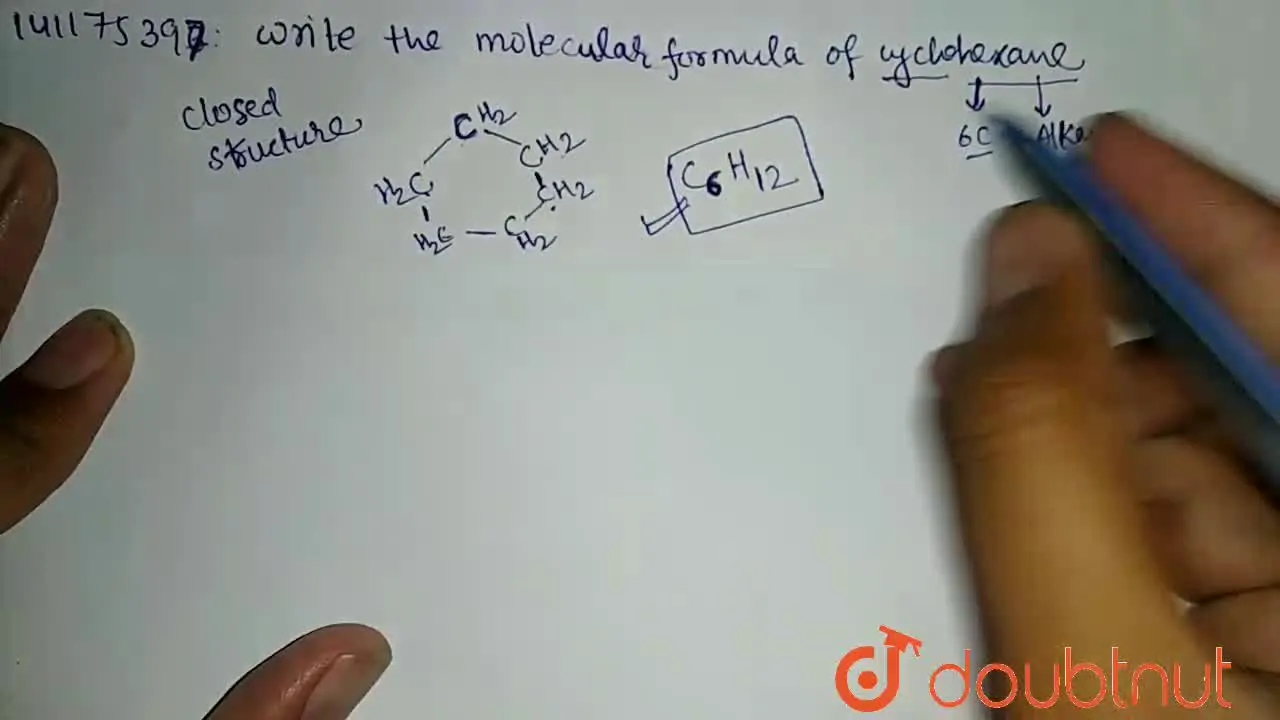 141175397: write the molecular formula of cyclohexane
closed
structure
CH2
CH2
H2C
CH2
H2C
CH2
C6H12
6C
doubtnut